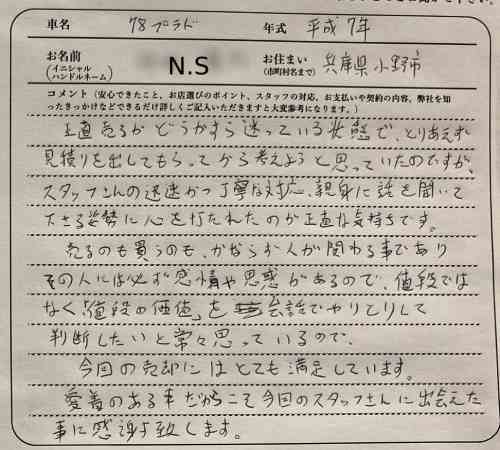 車名 78プラド 年式 平成7年
お名前 (イニシャル ハンドルネーム) N.S お住まい (市町村名まで) 兵庫県小野市
コメント (安心できたこと、お店選びのポイント、スタッフの対応、お支払いや契約の内容、弊社を知
ったきっかけなどできるだけ詳しくご記入いただきますと大変参考になります。)
正直売るかどうかすら迷っている状態で、とりあえず
見積りを出してもらってから考えようと思っていたのですが、
スタッフさんの迅速かつ丁寧な対応、親身に話を聞いて
下さる姿勢に心を打たれたのが正直な気持ちです。
売るのも買うのも、かならず人が関わる事であり
その人には必ず感情や思惑があるので、値段では
なく「値段の価値」を会話でやりとりして
判断したいと常々思っているので、
今回の売却にはとても満足しています。
愛着のある車だからこそ今回のスタッフさんに出会えた
事に感謝致します。